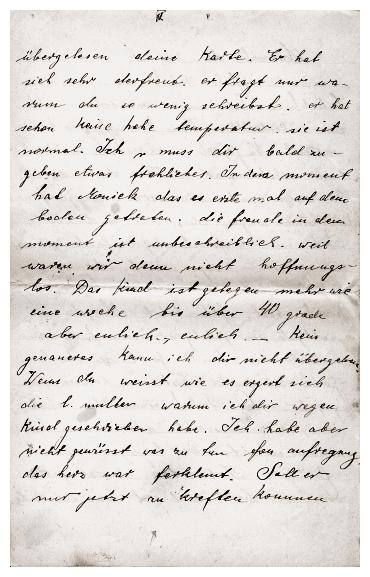 II
übergelesen deine Karte. Er hat
sich sehr derfreut. er fragt nur wa-
rum du so wenig schreibst. er hat
schon keine hohe temperatur. sie ist
normal. Ich muss dir bald zu-
geben etwas frohliches. In dem moment
hat Moniek das erste mal auf dem
boden getreten. die freude in dem
moment ist unbeschreiblich. weil
waren wir denn nicht hoffnungs-
los. Das kind ist gelegen mehr wie
eine woche bis über 40 grade
aber enlich., enlich. — Kein
genaueres kann ich dir nicht übergeben
Wenn du weisst wie es ergert sich
die l. mutter warum ich dir wegen
Kind geschrieben habe. Ich habe aber
nicht gewüsst was zu tun fon aufregung
das herz war ferklemt. Soll er
nur jetzt zu kreften kommen